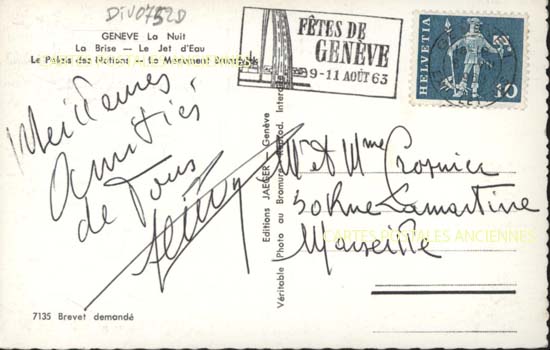 DIV0752D
GENEVE La Nuit
La Brise — Le Jet d'Eau
Le Palais des Nations — Le Monument Brunswick
Meilleures
amitiés
de Tous
7135 Brevet demandé
Editions JAEGER — Genève
Véritable Photo au Bromure - Reprod. Interdite
FÊTES DE
GENÈVE
9-11 AOÛT 63
HELVETIA
10
Mr et Mme
30 Rue Lamartine
Marseille
CARTES POSTALES ANCIENNES